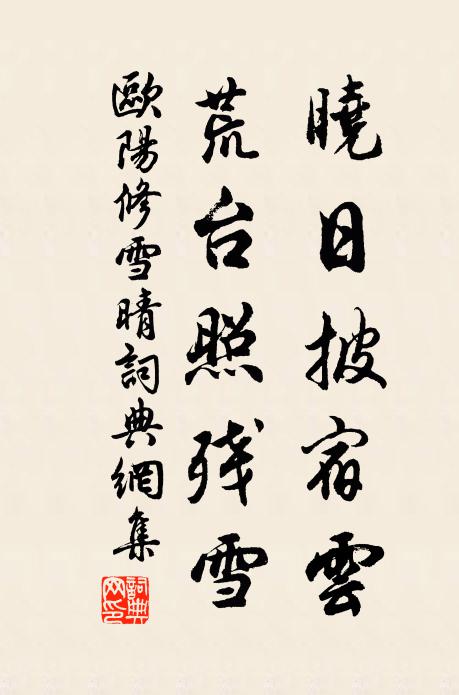 曉日披宿雲
荒台照残雪
歐陽修雪晴詞典網集
詞典网印